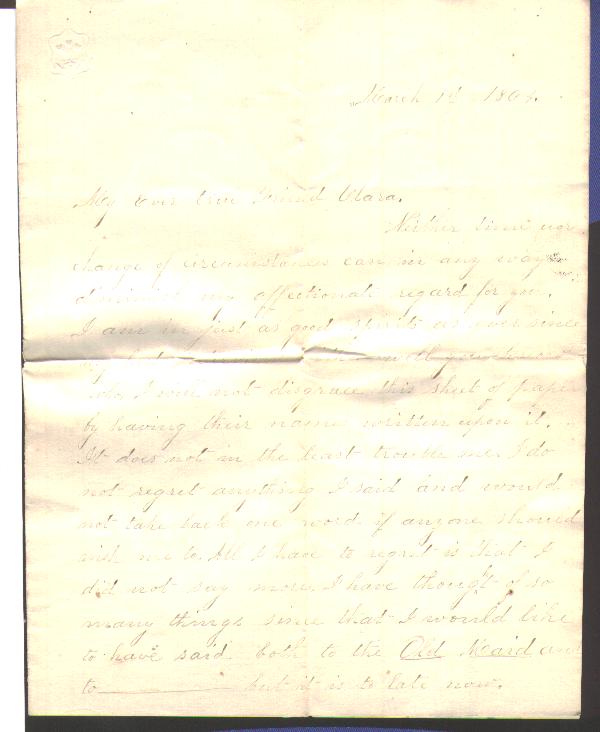 March 1st 186
My Ever true Friend Clara.
Neither time nor
change of circumstances can in any way
diminish my affectionate regard for you.
I am in just as good spirits as ever since
well you know
who, I will not disgrace this sheet of paper
by having their name written upon it.
It does not in the least trouble me. I do
not regret anything I said and would
not take back one word if anyone should
wish me to. All I have to regret is that I
did not say more. I have thought of so
many things since that I would like
to have said both to the Old Maid and
to ———— but it is to late now.